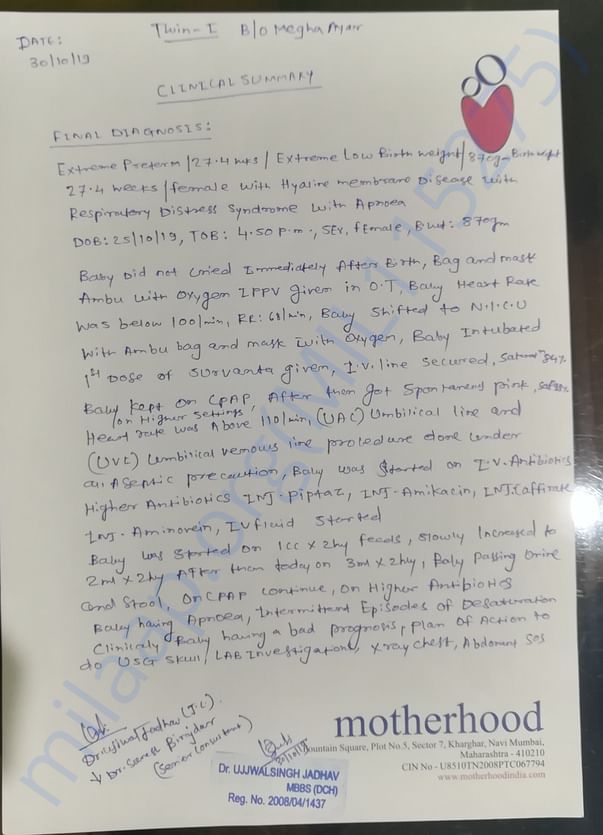 DATE:
30/10/19
Twin-I B/o Megha
CLINICAL SUMMARY
FINAL DIAGNOSIS:
Extreme Preterm /27.4 wks / Extreme Low Birth weight/870gm Birth weight
27.4 weeks / female with Hyaline membrane Disease with
Respiratory Distress Syndrome with Apnoea
DOB: 25/10/19, TOB: 4.50 p.m., Sex, female, B.wt: 870gm
Baby Did not cried Immediately After Birth, Bag and mask
Ambu with Oxygen IPPV given in O.T, Baby Heart Rate
was below 100/min, RR: 68/min, Baby Shifted to N.I.C.U
with Ambu bag and mask with Oxygen, Baby Intubated
1st Dose of Survanta given, I.V. line secured,
Baby Kept on CPAP, After then got Spontaneous pink,
on Higher settings,
Heart rate was Above 110/min, (UAC) Umbilical line and
(UVC) Umbilical venous line procedure done under
all Aseptic precaution, Baby was started on I.V. Antibiotics
Higher Antibiotics INJ. Piptaz, INJ. Amikacin, INJ.
INJ. Aminovein, IV fluid started
Baby was started on 1cc x 2hy feeds, slowly Increased to
2ml x 2hy After then today on 3ml x 2hy, Baby passing Urine
and Stool, On CPAP continue, On Higher Antibiotics
Baby having Apnoea, Intermittent Episodes of Desaturation
Clinicaly Baby having a bad prognosis, Plan of Action to
do USG Skull, LAB Investigations, x ray chest, SOS
Dr. Ujjwal Jadhav (J.C).
Dr. Suresh Birajdar
(Senior Consultant)
30/10/19
Dr. UJJWALSINGH JADHAV
MBBS (DCH)
Reg. No. 2008/04/1437
motherhood
ountain Square, Plot No.5, Sector 7, Kharghar, Navi Mumbai,
Maharashtra - 410210
CIN No - U8510TN2008PTC067794
www.motherhoodindia.com